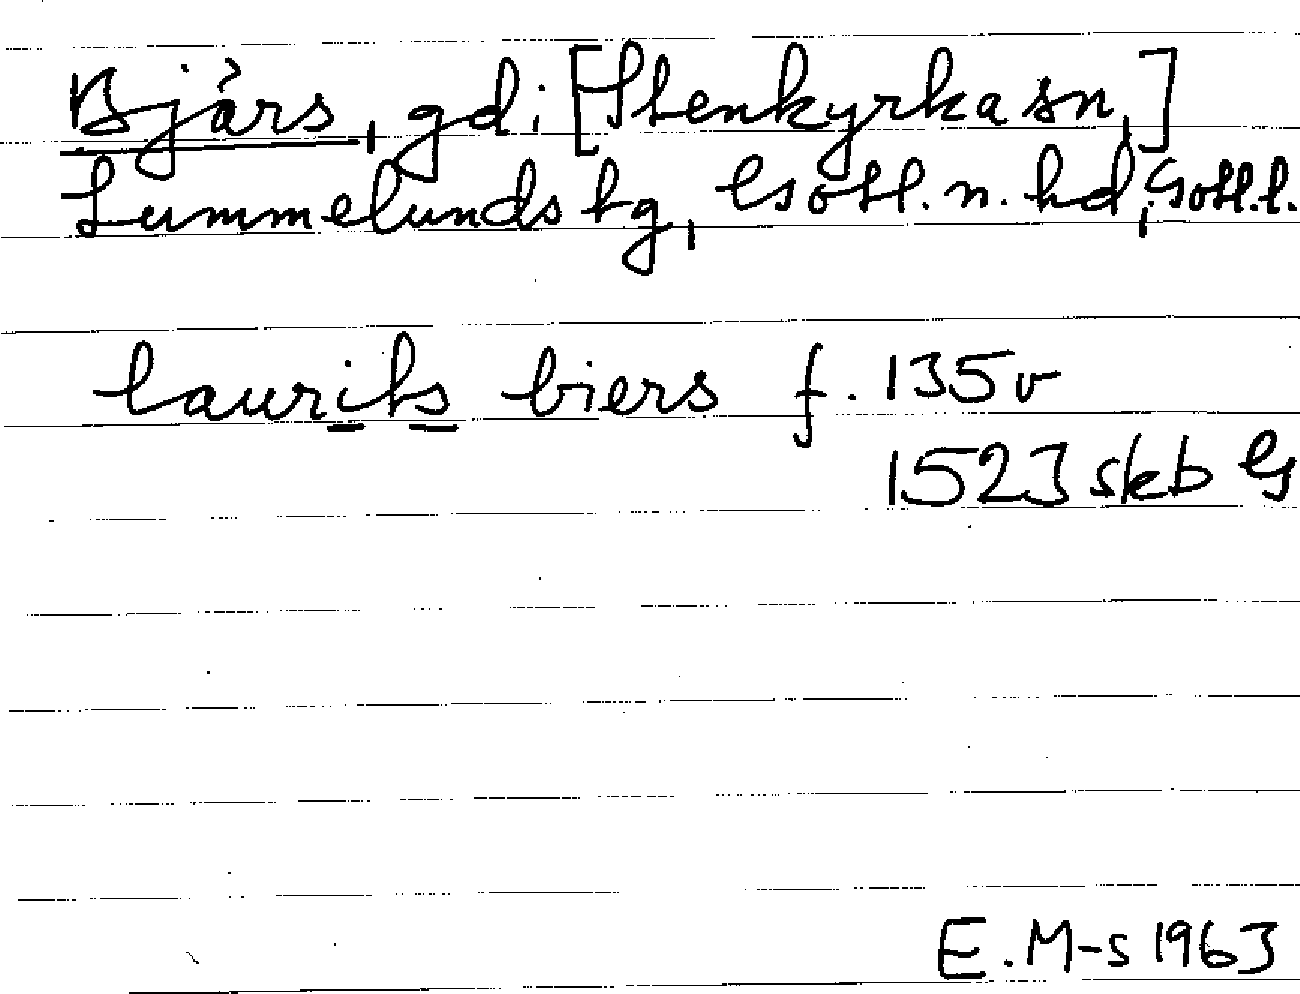 Bjärs, gd; [Stenkyrka sn,]
Lummelunds tg, Gotl. n. hd; Gotl. l.
laurits biers f. 135v
1523 skb G
E. M-s 1963